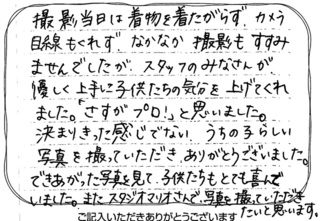 撮影当日は着物を着たがらず、カメラ
目線もくれず、なかなか撮影もすすみ
ませんでしたが、スタッフのみなさんが
優しく上手に子供たちの気分を上げてくれ
ました。「さすがプロ!」と思いました。
決まりきった感じでない、うちの子らしい
写真を撮っていただき、ありがとうございました。
できあがった写真を見て、子供たちもとても喜んで
いました。またスタジオマリオさんで、写真を撮っていただき
たいと思います。
ご記入いただきありがとうございます